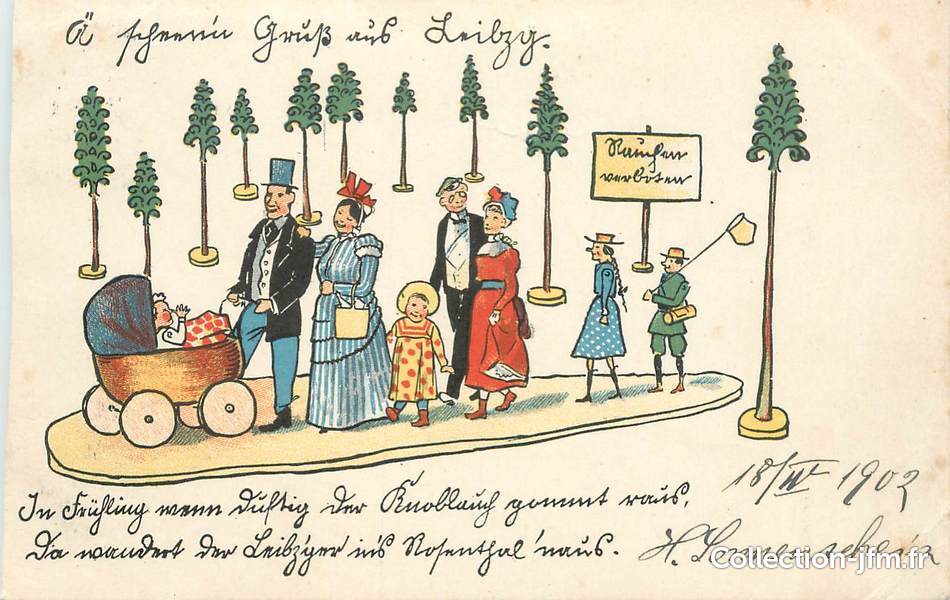 Ä scheen'n Gruß aus Leibzg.
Rauchen
verboten
18/IV 1902
In Frühling wenn duftig der Knoblauch gommt raus,
Da wandert der Leibz'ger in's Rosenthal 'naus.
H.
Collection-jfm.fr